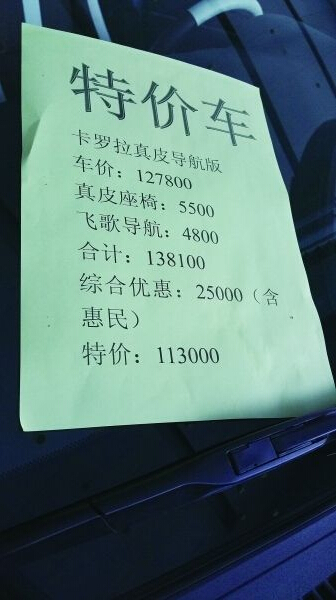 特价车
卡罗拉真皮导航版
车价：127800
真皮座椅：5500
飞歌导航：4800
合计：138100
综合优惠：25000（含
惠民）
特价：113000